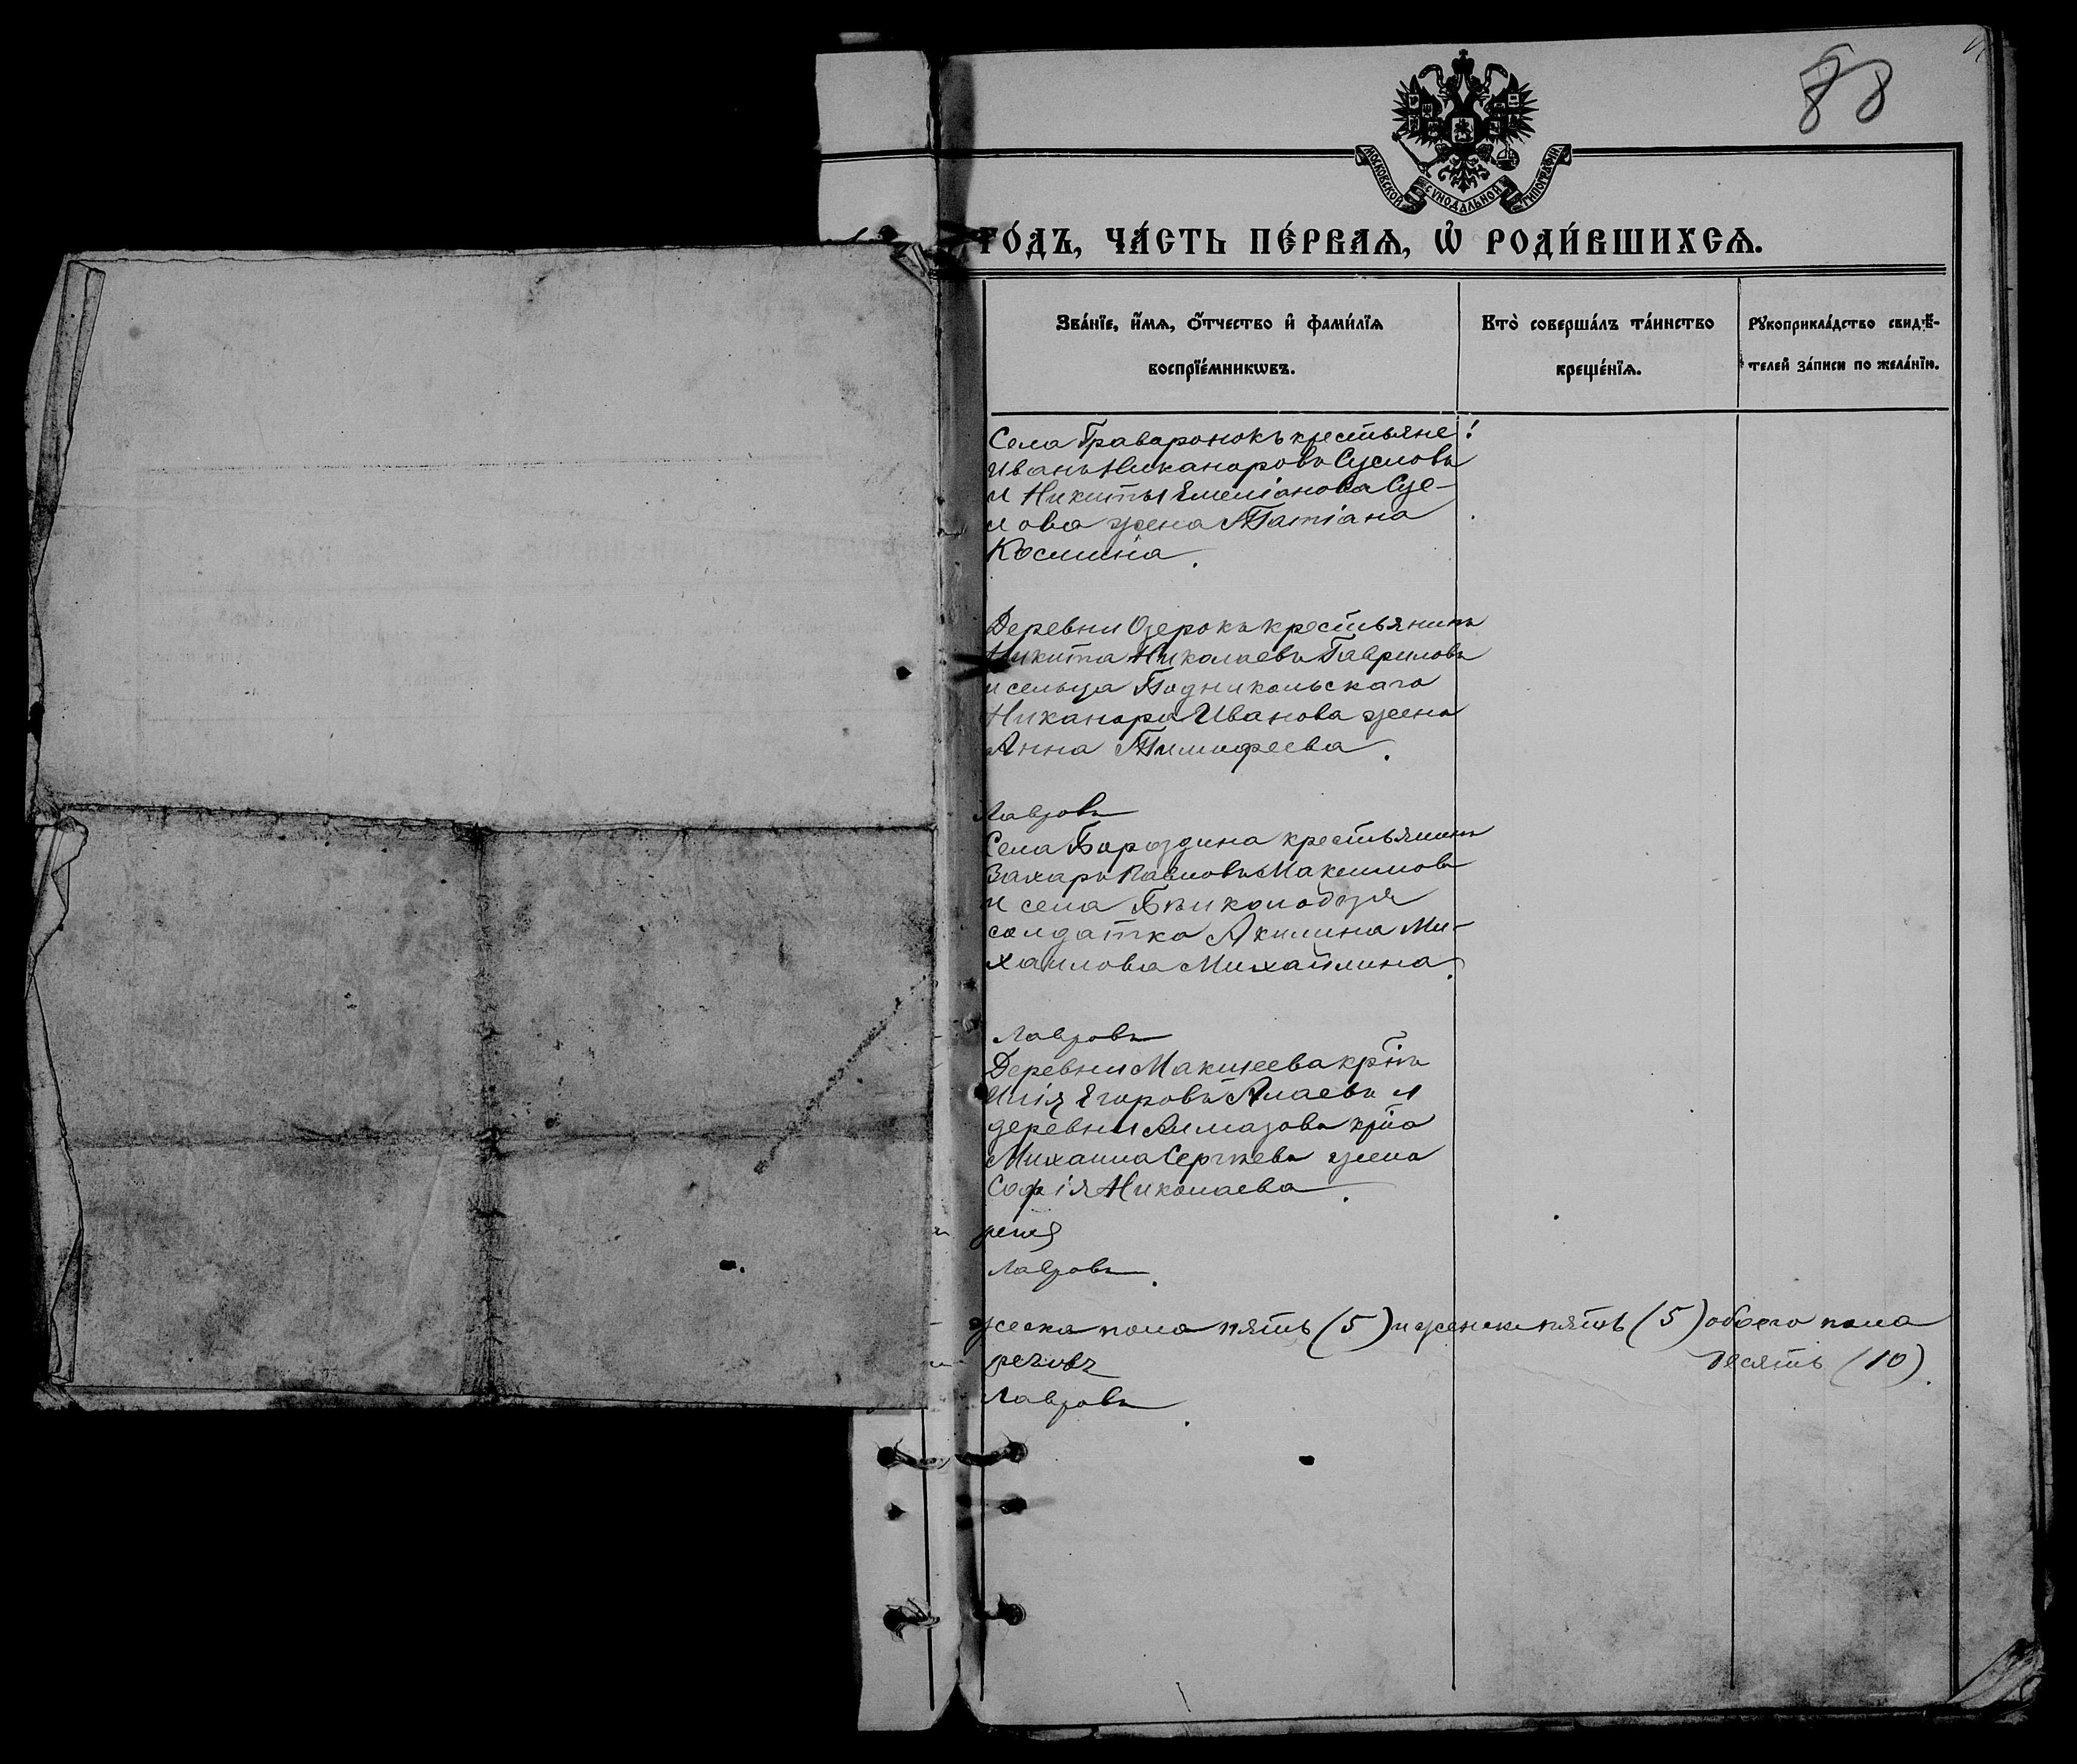 88
МОСКОВСКОЙ СѴНОДАЛЬНОЙ ТИПОГРАФІИ
ГО́ДЪ, ЧА́СТЬ ПЕ́РВАѦ, Ѡ҆ РОДИ́ВШИХСѦ.
Зва́нїе, и҆́мѧ, ѻ҆́тчество и҆ фами́лїѧ
воспрїе́мникѡвъ.
Кто̀ соверша́лъ та́инство
креще́нїѧ.
Рꙋкоприкла́дство свидѣ́-
телей за́писи по жела́нїю.
Села Граворонокъ крестьяне:
Иванъ Никаноровъ Сусловъ
и Никиты Емеліанова Сус-
лова жена Татіана
Косьмина.
Деревни Озерокъ крестьянинъ
Никита Николаевъ Гавриловъ
и сельца Подникольскаго
Никанора Иванова жена
Анна Тимофеева.
Лавровъ
Села Бороздина крестьянинъ
Захаръ Павловъ Максимовъ
и села Бѣлколодезя
солдатка Акилина Ми-
хаилова Михайлина.
Лавровъ
Деревни Макшеева кр֮нъ
Илія Егоровъ Алаевъ и
деревни Алмазова
Михаила Сергѣева жена
Софія Николаева.
Лавровъ.
жеска пола пять (5) и женска пять (5) обоего пола
десять (10).
Лавровъ